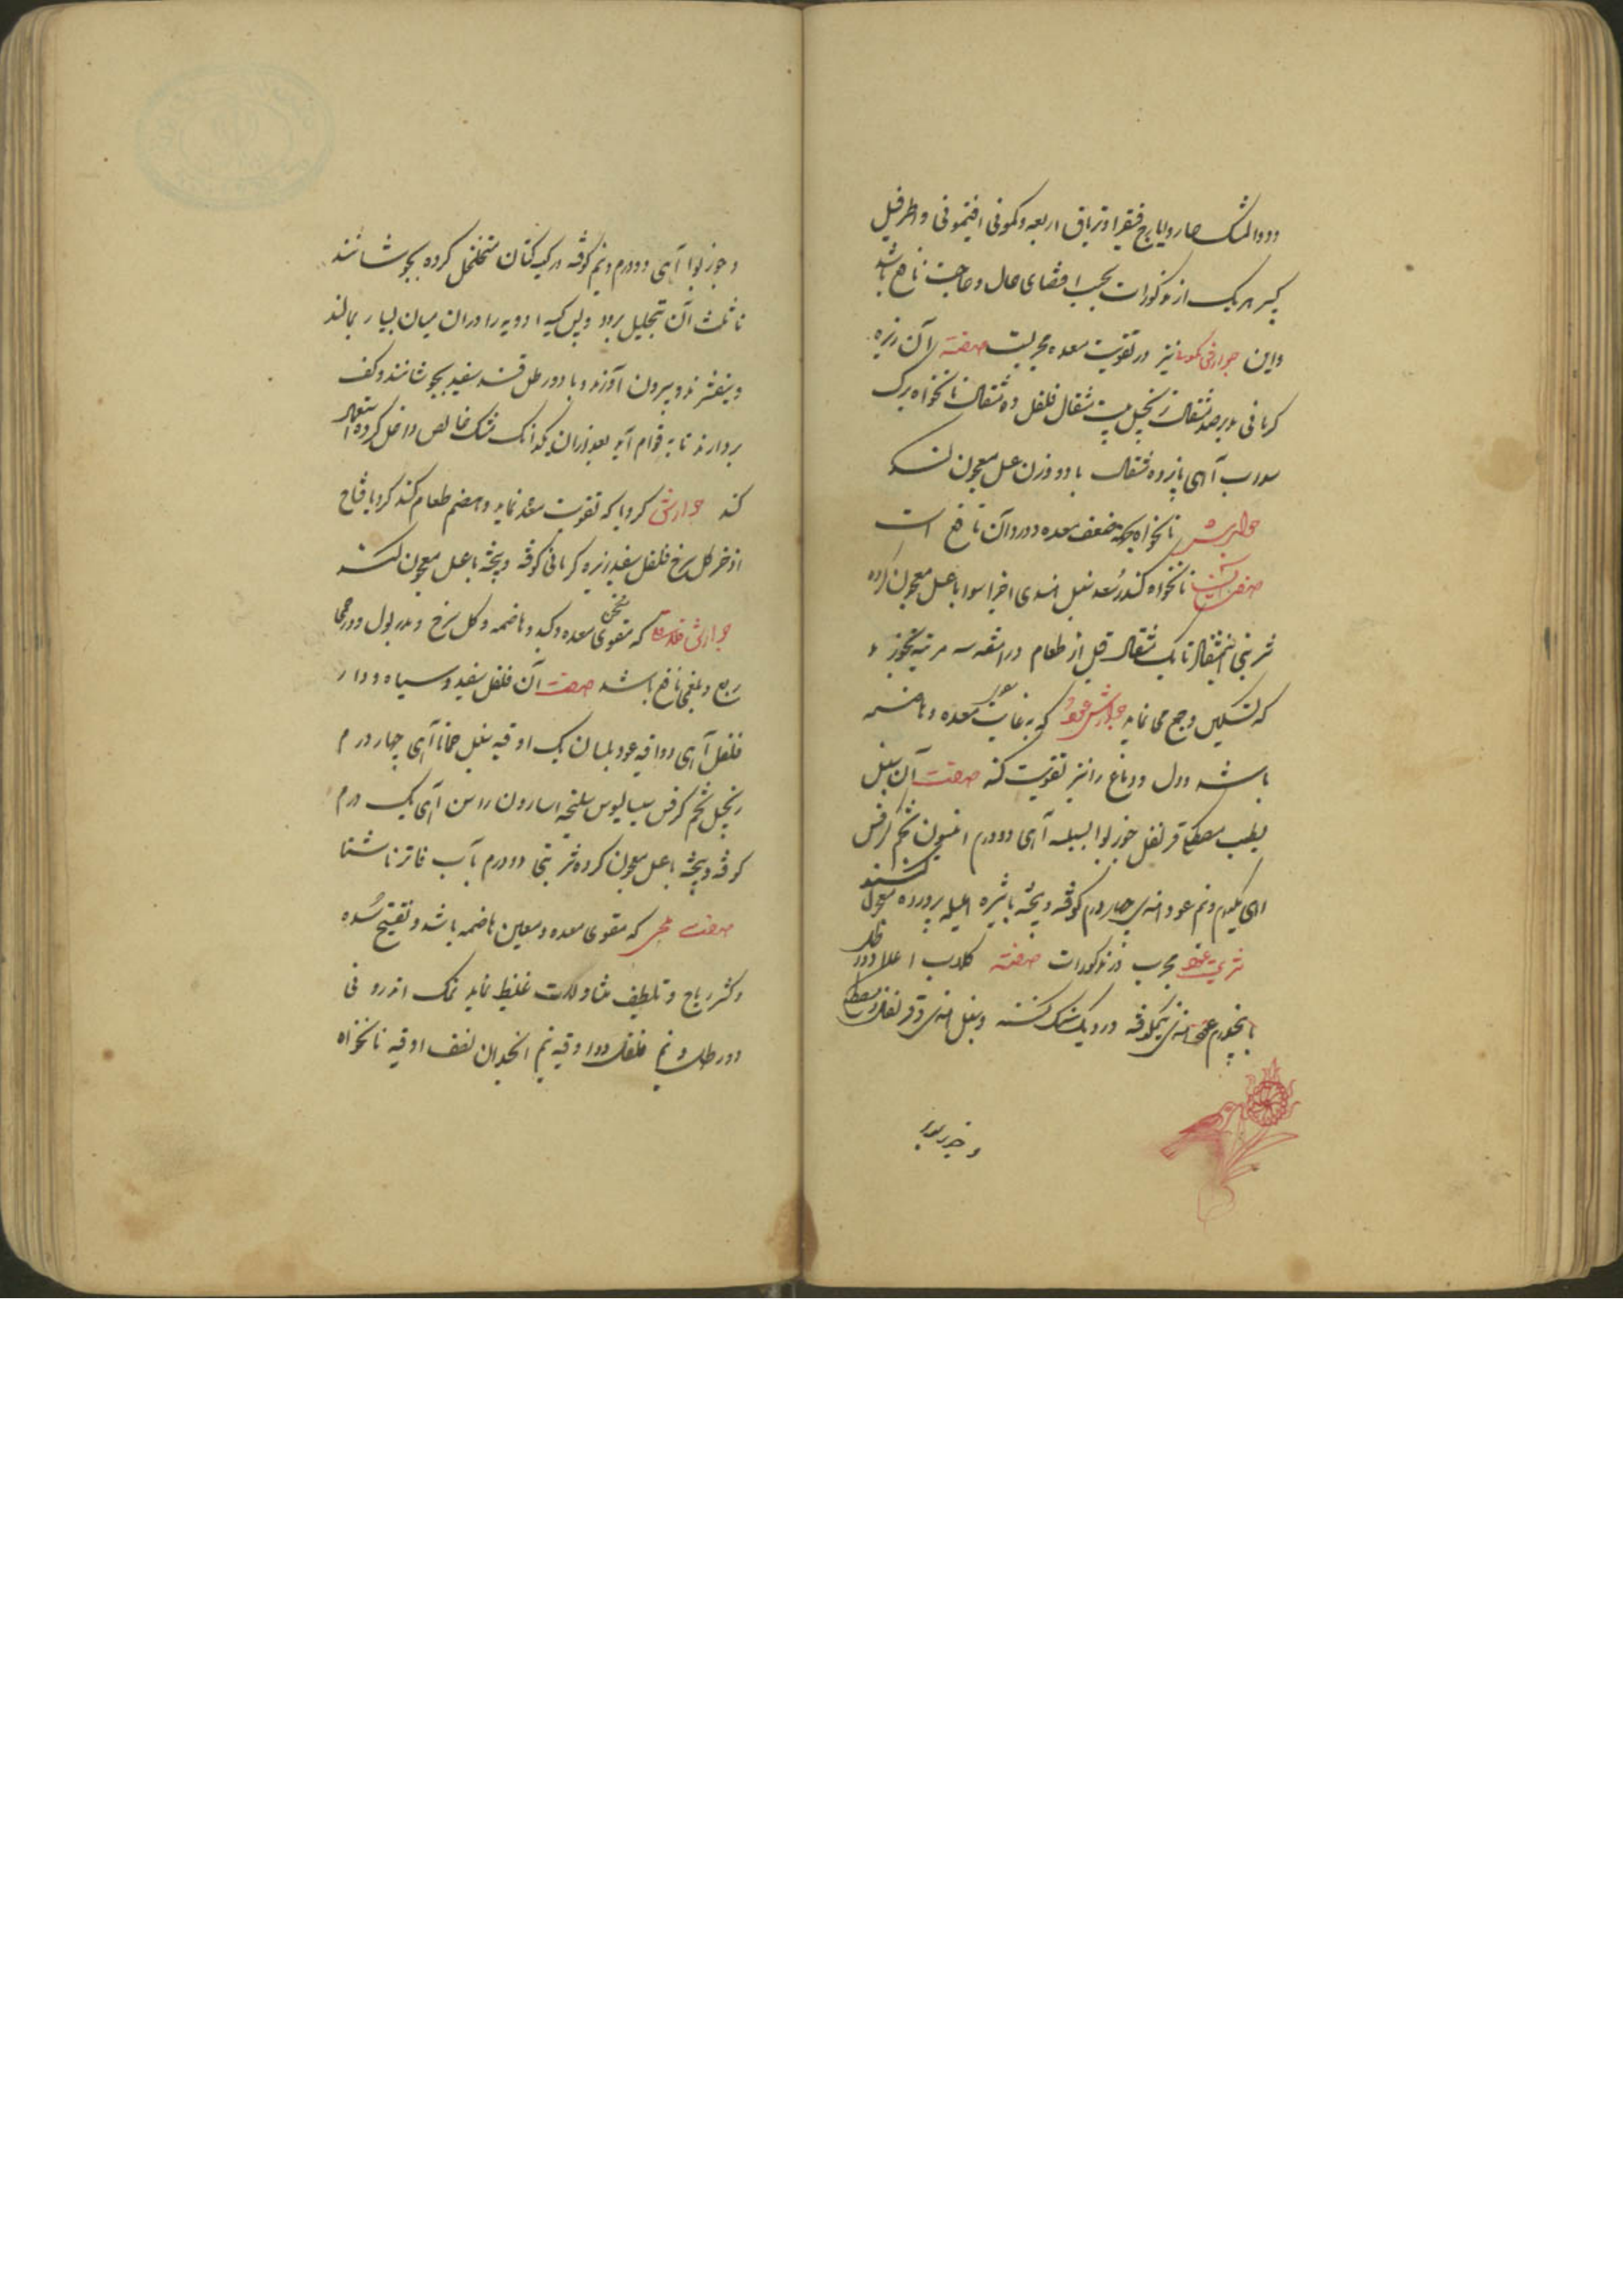 ودواالمشک حار وایارج فیقرا وتریاق اربعه وکمونی افتیمونی واطرفیل
کبیر هریک از مذکورات بحسب اقتضای حال وحاجت نافع باشد
واین جوارش کمونی نیز در تقویت معده مجربست صفته آن زیره
کرمانی مدبر صد مثقال زنجبیل بیست مثقال فلفل ده مثقال نانخواه برک
سداب آای پانزده مثقال با دو وزن عسل معجون کنند
جوارش نانخواه جهة ضعف معده ودرد آن نافع است
صفت نانخواه کندر سعد سنبل هندی اجزا سوا با عسل معجون کرده
شربتی نیمثقال تا یک مثقال قبل از طعام در هفته سه مرتبه بخورند
که تسکین وجع می نماید جوارش عود که به غایت معده وهاضمه
باشد ودل ودماغ را نیز تقویت کند صفت آن سنبل
الطیب مصطکی قرنفل جوزبوا بسبسه آای دودرم انیسون تخم کرفس
آای یکدرم ونیم عود هندی چهار درم کوفته وبیخته باشیره املیله پرورده معجون کنند
شربت عود مجرب در مذکورات صفته کلاب اعلا دو رطل
پنجدرم عود هندی نیمکوفته در دیک سنک کنند وسنبل هندی وقرنفل ومصطکی
وجوزبوا
وجوزبوا آای دودرم ونیم کوفته در کیسه کتان متخلخل کرده بجوشانند
تا ثلث آن بتحلیل برود وپس کیسه ادویه را دران میان بسیار بمالند
وبیفشرند وبیرون آورند وبا دو رطل قند سفید بجوشانند وکف
بردارند تا به قوام آید بعد ازان یکدانک مشک خالص داخل کرده استعمال
کند جوارش کرویا که تقویت معده نماید وهضم طعام کند کرویا فقاح
اذخر کل سرخ فلفل سفید زیره کرمانی کوفته وبیخته با عسل معجون کنند
جوارش که مقوی مسخن معده وکبد وهاضمه وکل سرخ ومدر بول ودر حمی
ربع وبلغمی نافع باشد صفت آن فلفل سفید وسیاه ودار
فلفل آای دو اوقیه عود بلسان یک اوقیه سنبل حماما آای چهار درم
زنجبیل تخم کرفس سیسالیوس سلیخه اسارون راسن آای یک درم
کوفته وبیخته با عسل معجون کرده شربتی دودرم بآب فاتر ناشتا
صفت که مقوی معده ومعین هاضمه باشد وتفتیح سده
وکسر ریاح وتلطیف غلیظ نماید نمک اندرونی
دو رطل ونیم فلفل دو اوقیه ونیم انجدان نصف اوقیه نانخواه